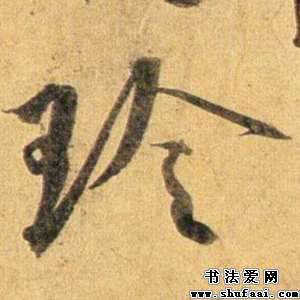 玲
书法爱网
www.shufaai.com